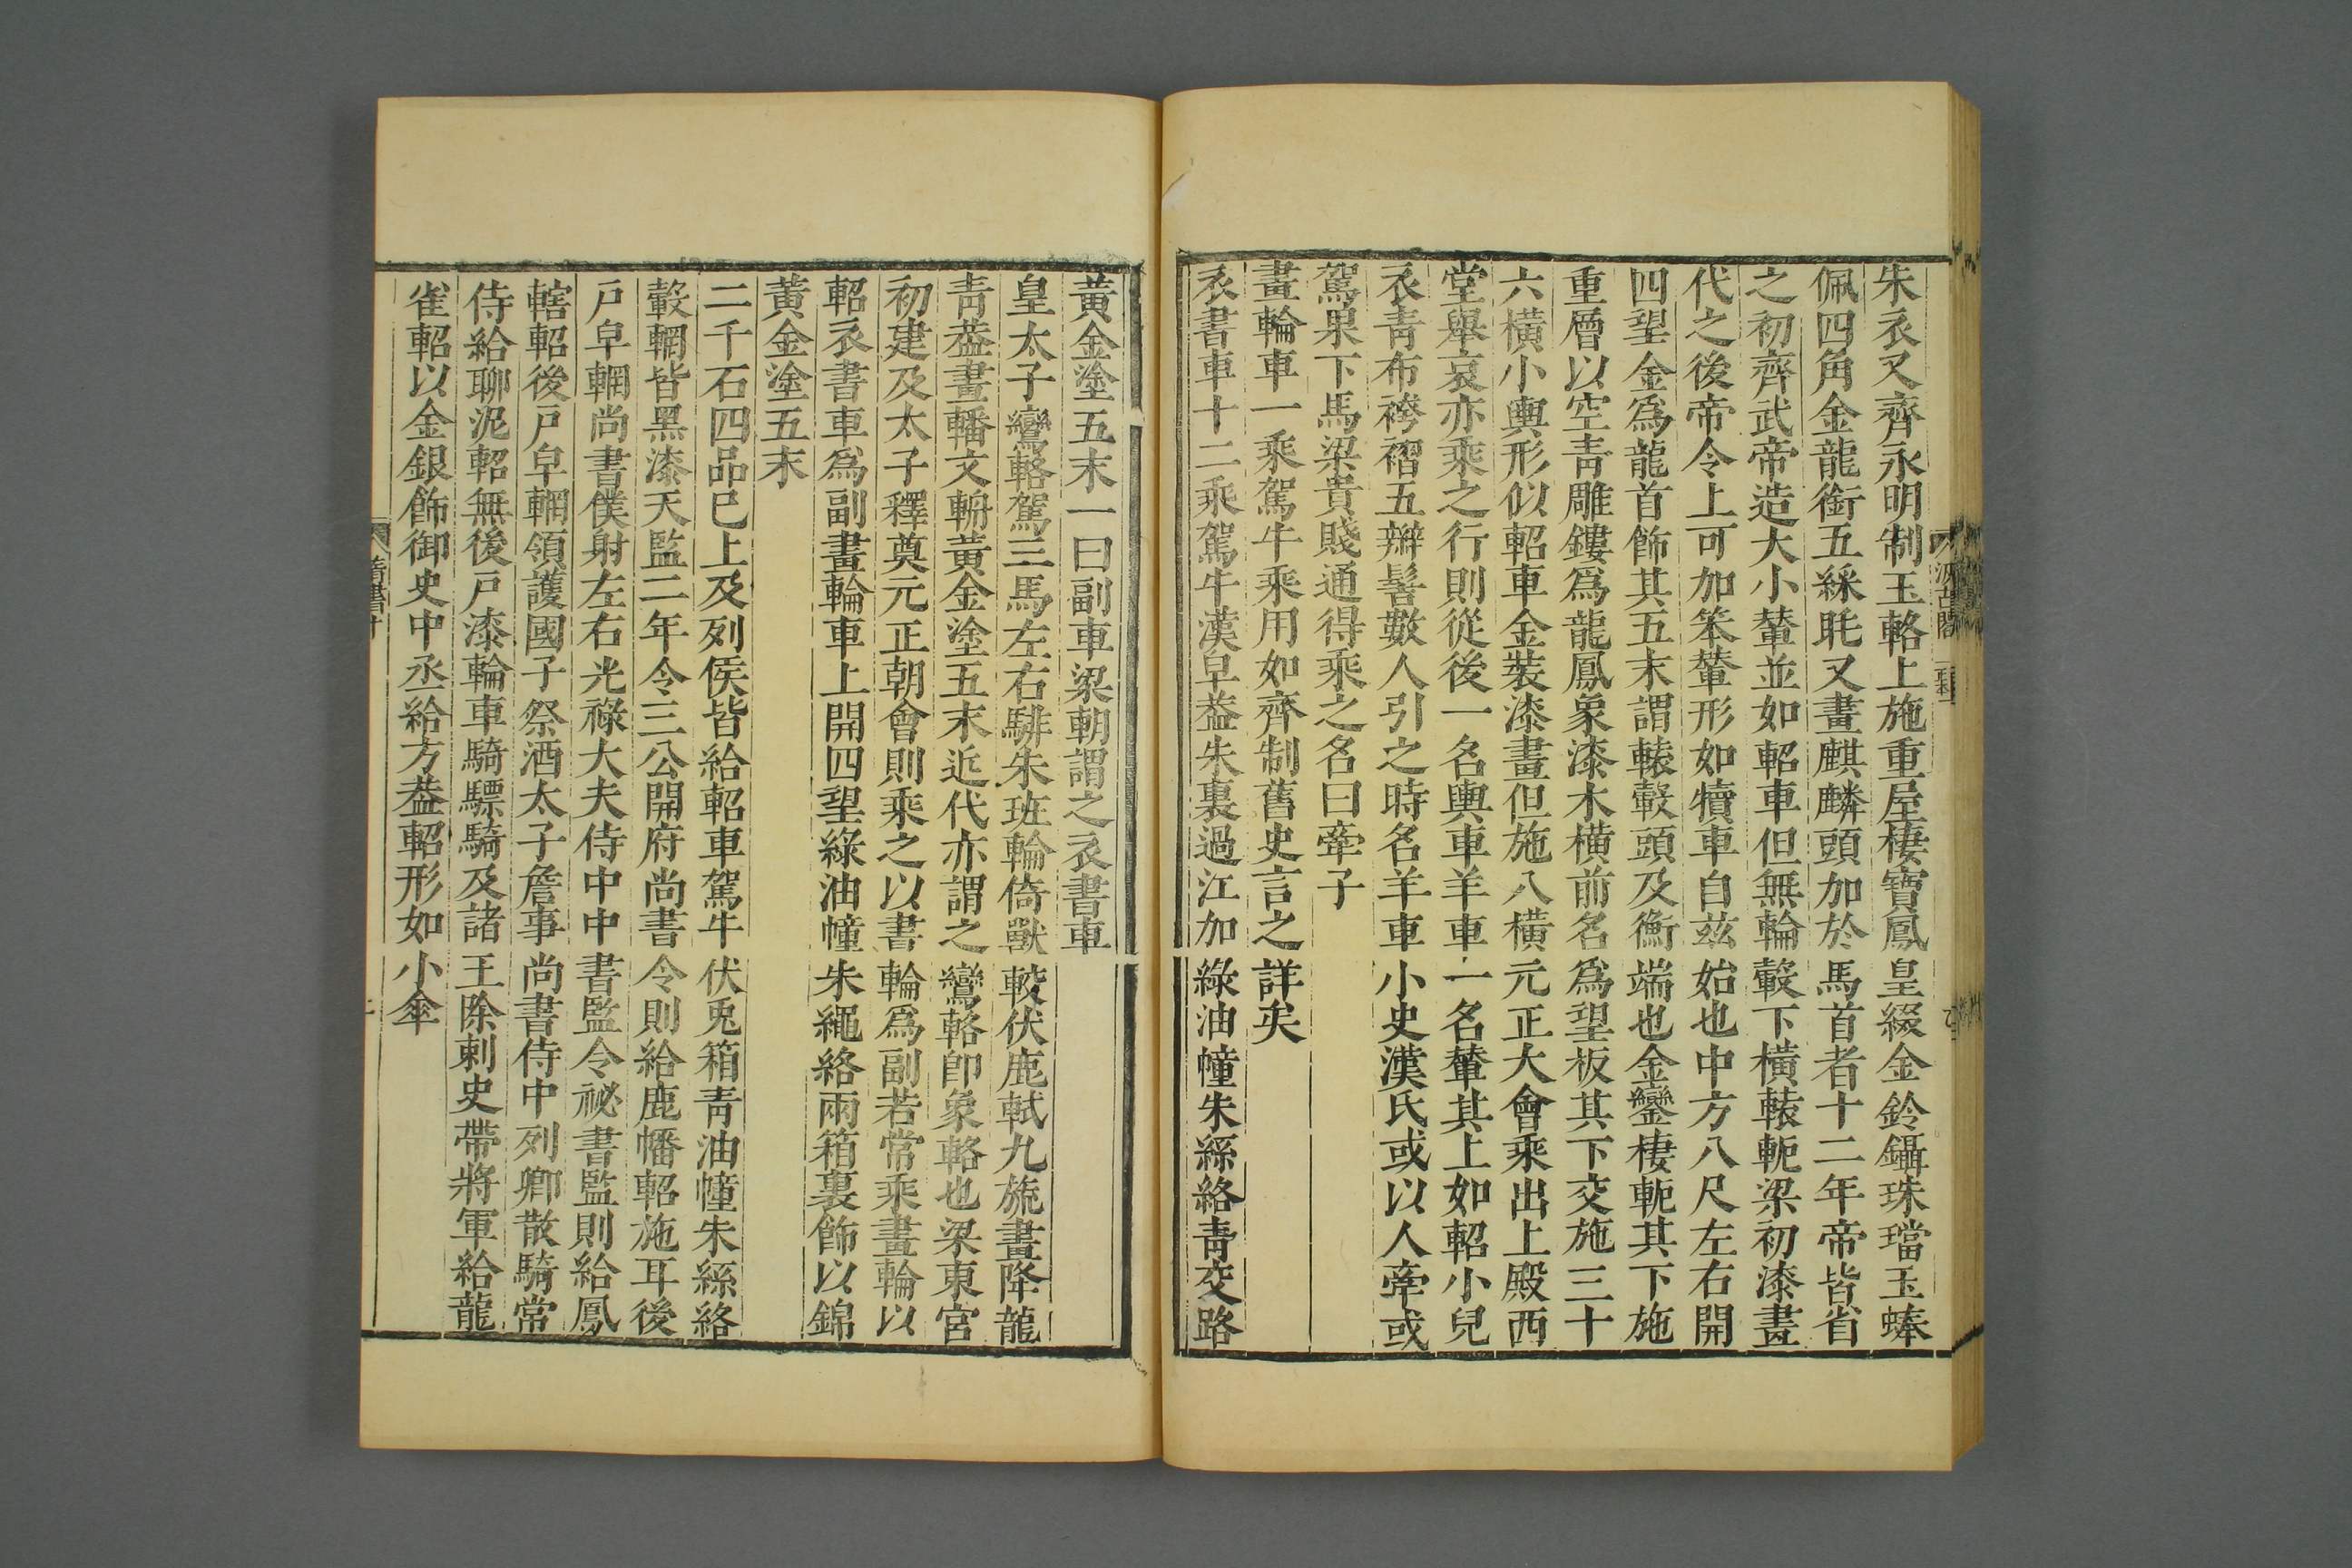 朱衣又齊永明制玉輅上施重屋棲寶鳳皇綴金鈴鑷珠璫玉蜯
佩四角金龍銜五綵毦又畫麒麟頭加於馬首者十二年帝皆省
之初齊武帝造大小輦並如軺車但無輪轂下橫轅軛梁初漆畫
代之後帝令上可加笨輦形如犢車自茲始也中方八尺左右開
四望金爲龍首飾其五末謂轅轂頭及衡端也金鸞棲軛其下施
重層以空青雕鏤爲龍鳳象漆木橫前名爲望板其下交施三十
六橫小輿形似軺車金裝漆畫但施八橫元正大會乘出上殿西
堂舉哀亦乘之行則從後一名輿車羊車一名輦其上如軺小兒
衣青布袴褶五辮髻數人引之時名羊車小史漢氏或以人牽或
駕果下馬梁貴賤通得乘之名曰牽子
畫輪車一乘駕牛乘用如齊制舊史言之詳矣
衣書車十二乘駕牛漢皁葢朱裏過江加綠油幢朱絲絡青交路
黃金塗五末一曰副車梁朝謂之衣書車
皇太子鸞輅駕三馬左右騑朱班輪倚獸較伏鹿軾九旒畫降龍
青葢畫轓文輈黃金塗五末近代亦謂之鸞輅卽象輅也梁東宮
初建及太子釋奠元正朝會則乘之以書輪爲副若常乘畫輪以
軺衣書車爲副畫輪車上開四望綠油幢朱繩絡兩箱裏飾以錦
黃金塗五末
二千石四品已上及列侯皆給軺車駕牛伏兎箱青油幢朱絲絡
轂輞皆黑漆天監二年令三公開府尚書令則給鹿幡軺施耳後
戶皁輞尚書僕射左右光祿大夫侍中中書監令祕書監則給鳳
轄軺後戶皁輞領護國子祭酒太子詹事尚書侍中列卿散騎常
侍給聊泥軺無後戶漆輪車騎驃騎及諸王除刺史帶將軍給龍
雀軺以金銀飾御史中丞給方葢軺形如小傘